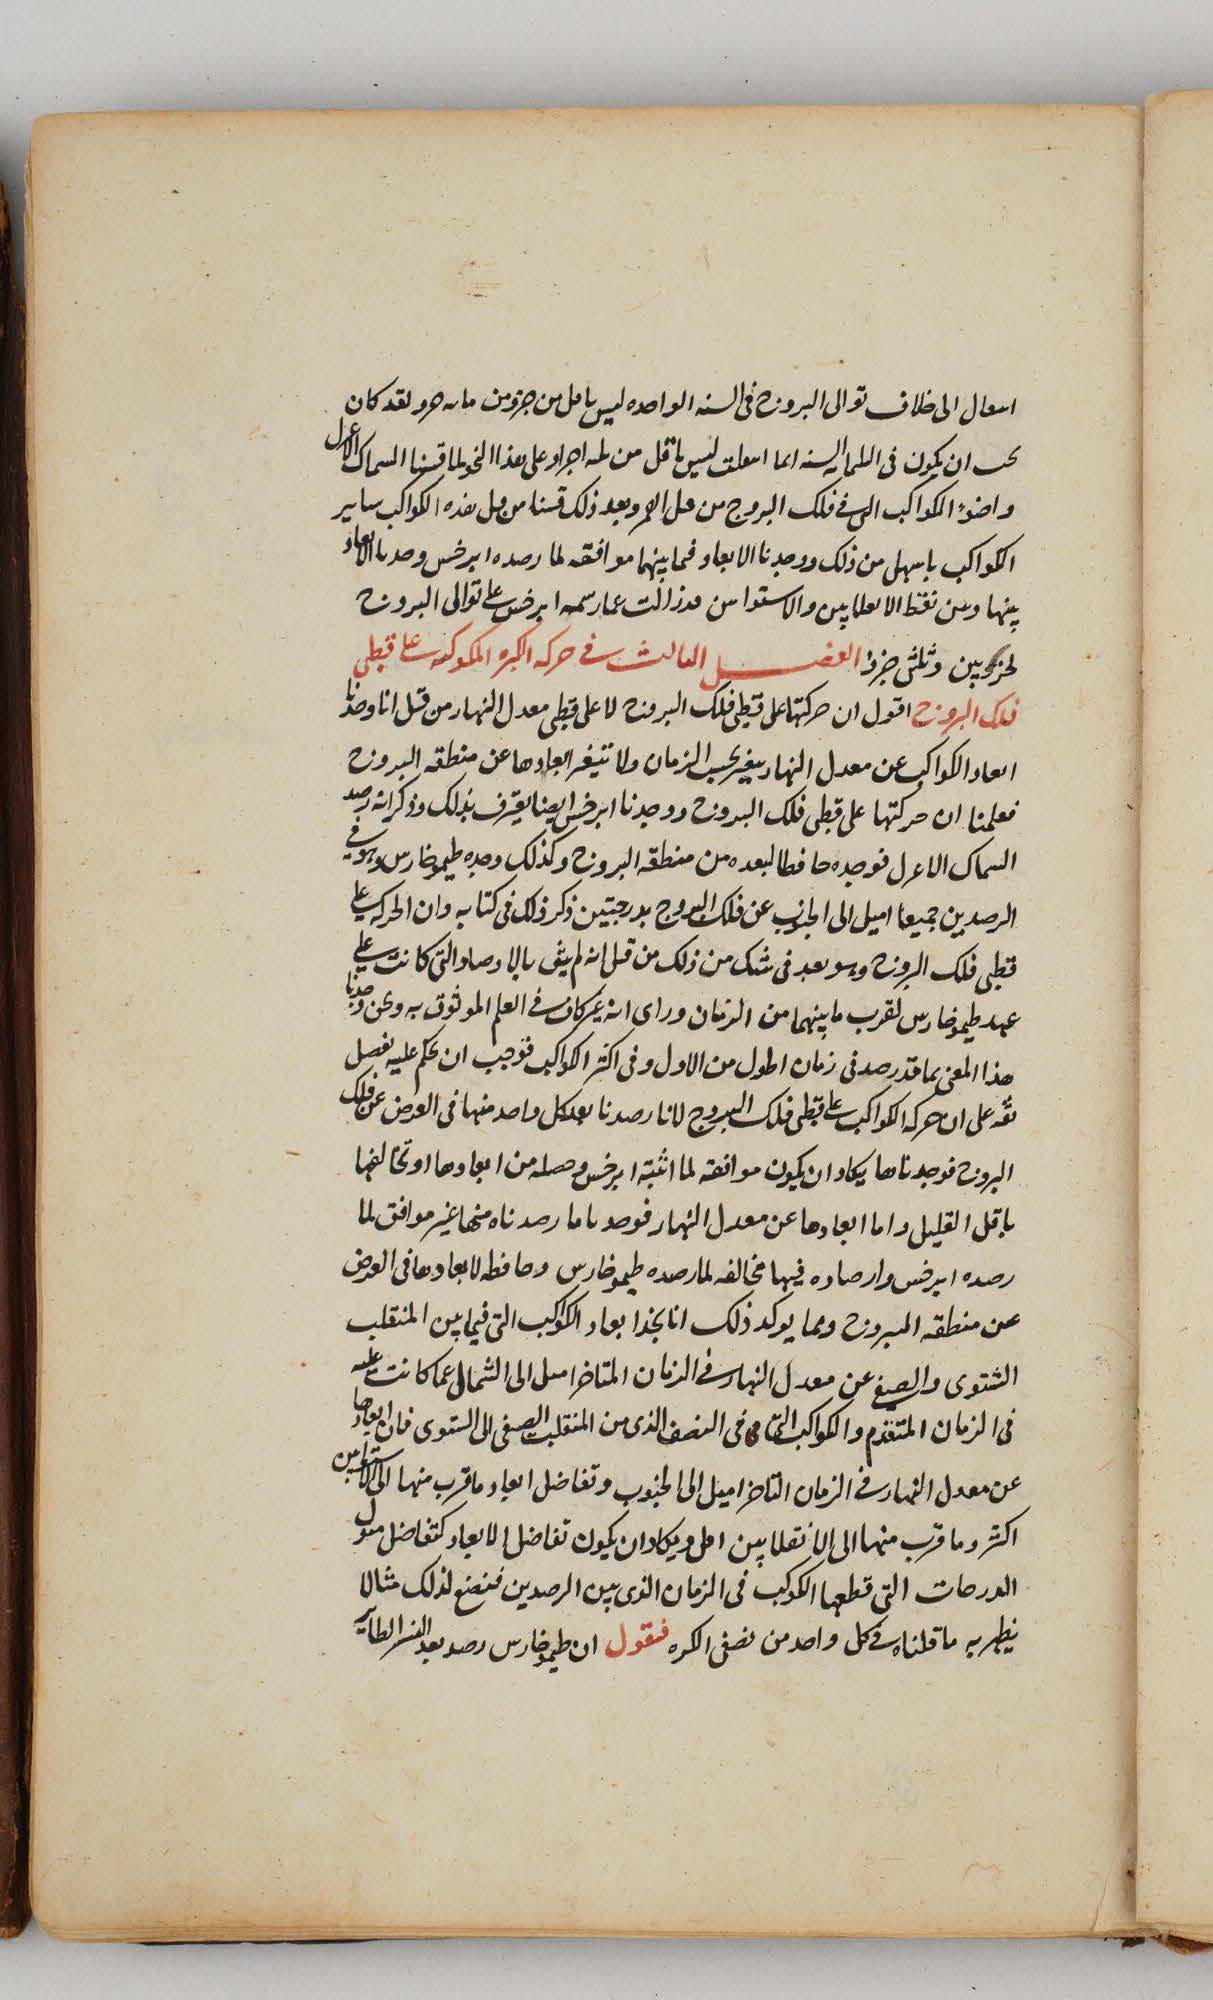 انتقال الى خلاف توالى البروج فى السنه الواحده ليس باقل من جزو من مائه جزو لقد كان
يجب ان يكون فى الثلثمايه السنه انما انتقلت ليس باقل من ثلثه اجزاو على هذا النحو لما قسنا السماك الاعزل
واضوا الكواكب التى فى فلك البروج من قبل القمر وبعد ذلك قسنا من قبل هذه الكواكب ساير
الكواكب باسهل من ذلك ووجدنا الابعاد فيما بينهما موافقه لما رصده ابرخس ووجدنا الابعاد
بينها وبين نقط الانقلابين والاستواين قد زالت عما رسمه ابرخس على توالى البروج
لجزوين وثلثى جزو الفصل الثالث فى حركه الكره المكوكبه على قطبى
فلك البروج اقول ان حركتها على قطبى فلك البروج لا على قطبى معدل النهار من قبل انا وجدنا
ابعاد الكواكب عن معدل النهار يتغير بحسب الزمان ولا تتغير ابعادها عن منطقه البروج
فعلمنا ان حركتها على قطبى فلك البروج ووجدنا ابرخس ايضا يعترف بذلك وذكر انه رصد
السماك الاعزل فوجده حافظا لبعده من منطقه البروج وكذلك وجده طيموخارس وهو فى
الرصدين جميعا اميل الى الجنوب عن فلك البروج بدرجتين ذكر ذلك فى كتابه وان الحركه على
قطبى فلك البروج وهو بعد فى شك من ذلك من قبل انه لم يثق بالارصاد التى كانت على
عهد طيموخارس لقرب ما بينهما من الزمان وراى انه غير كاف فى العلم الموثوق به ونحن وجدنا
هذا المعنى بما قد رصد فى زمان اطول من الاول وفى اكثر الكواكب فوجب ان نحكم عليه بفضل
ثقه على ان حركه الكواكب على قطبى فلك البروج لانا رصدنا بعد كل واحد منها فى العرض عن فلك
البروج فوجدناها يكاد ان يكون موافقه لما اثبته ابرخس وحصله من ابعادها او تخالفها
باقل القليل واما ابعادها عن معدل النهار فوجدنا ما رصدناه منها غير موافق لما
رصده ابرخس وارصاده فيها مخالفه لما رصده طيموخارس وحافظه لابعادها فى العرض
عن منطقه البروج ومما يوكد ذلك انا نجد ابعاد الكواكب التى فيما بين المنقلب
الشتوى والصيفى عن معدل النهار فى الزمان المتاخر اميل الى الشمال عما كانت عليه
فى الزمان المتقدم والكواكب التى فى النصف الذى من المنقلب الصيفى الى الشتوى فان ابعادها
عن معدل النهار فى الزمان المتاخر اميل الى الجنوب وتفاضل ابعاد ما قرب منها الى الاستوايين
اكثر وما قرب منها الى الانقلابين اقل ويكاد ان يكون تفاضل الابعاد كتفاضل ميول
الدرجات التى قطعها الكوكب فى الزمان الذى بين الرصدين فنضع لذلك مثالا
يظهر به ما قلناه فى كل واحد من نصفى الكره فنقول ان طيموخارس رصد بعد النسر الطاير